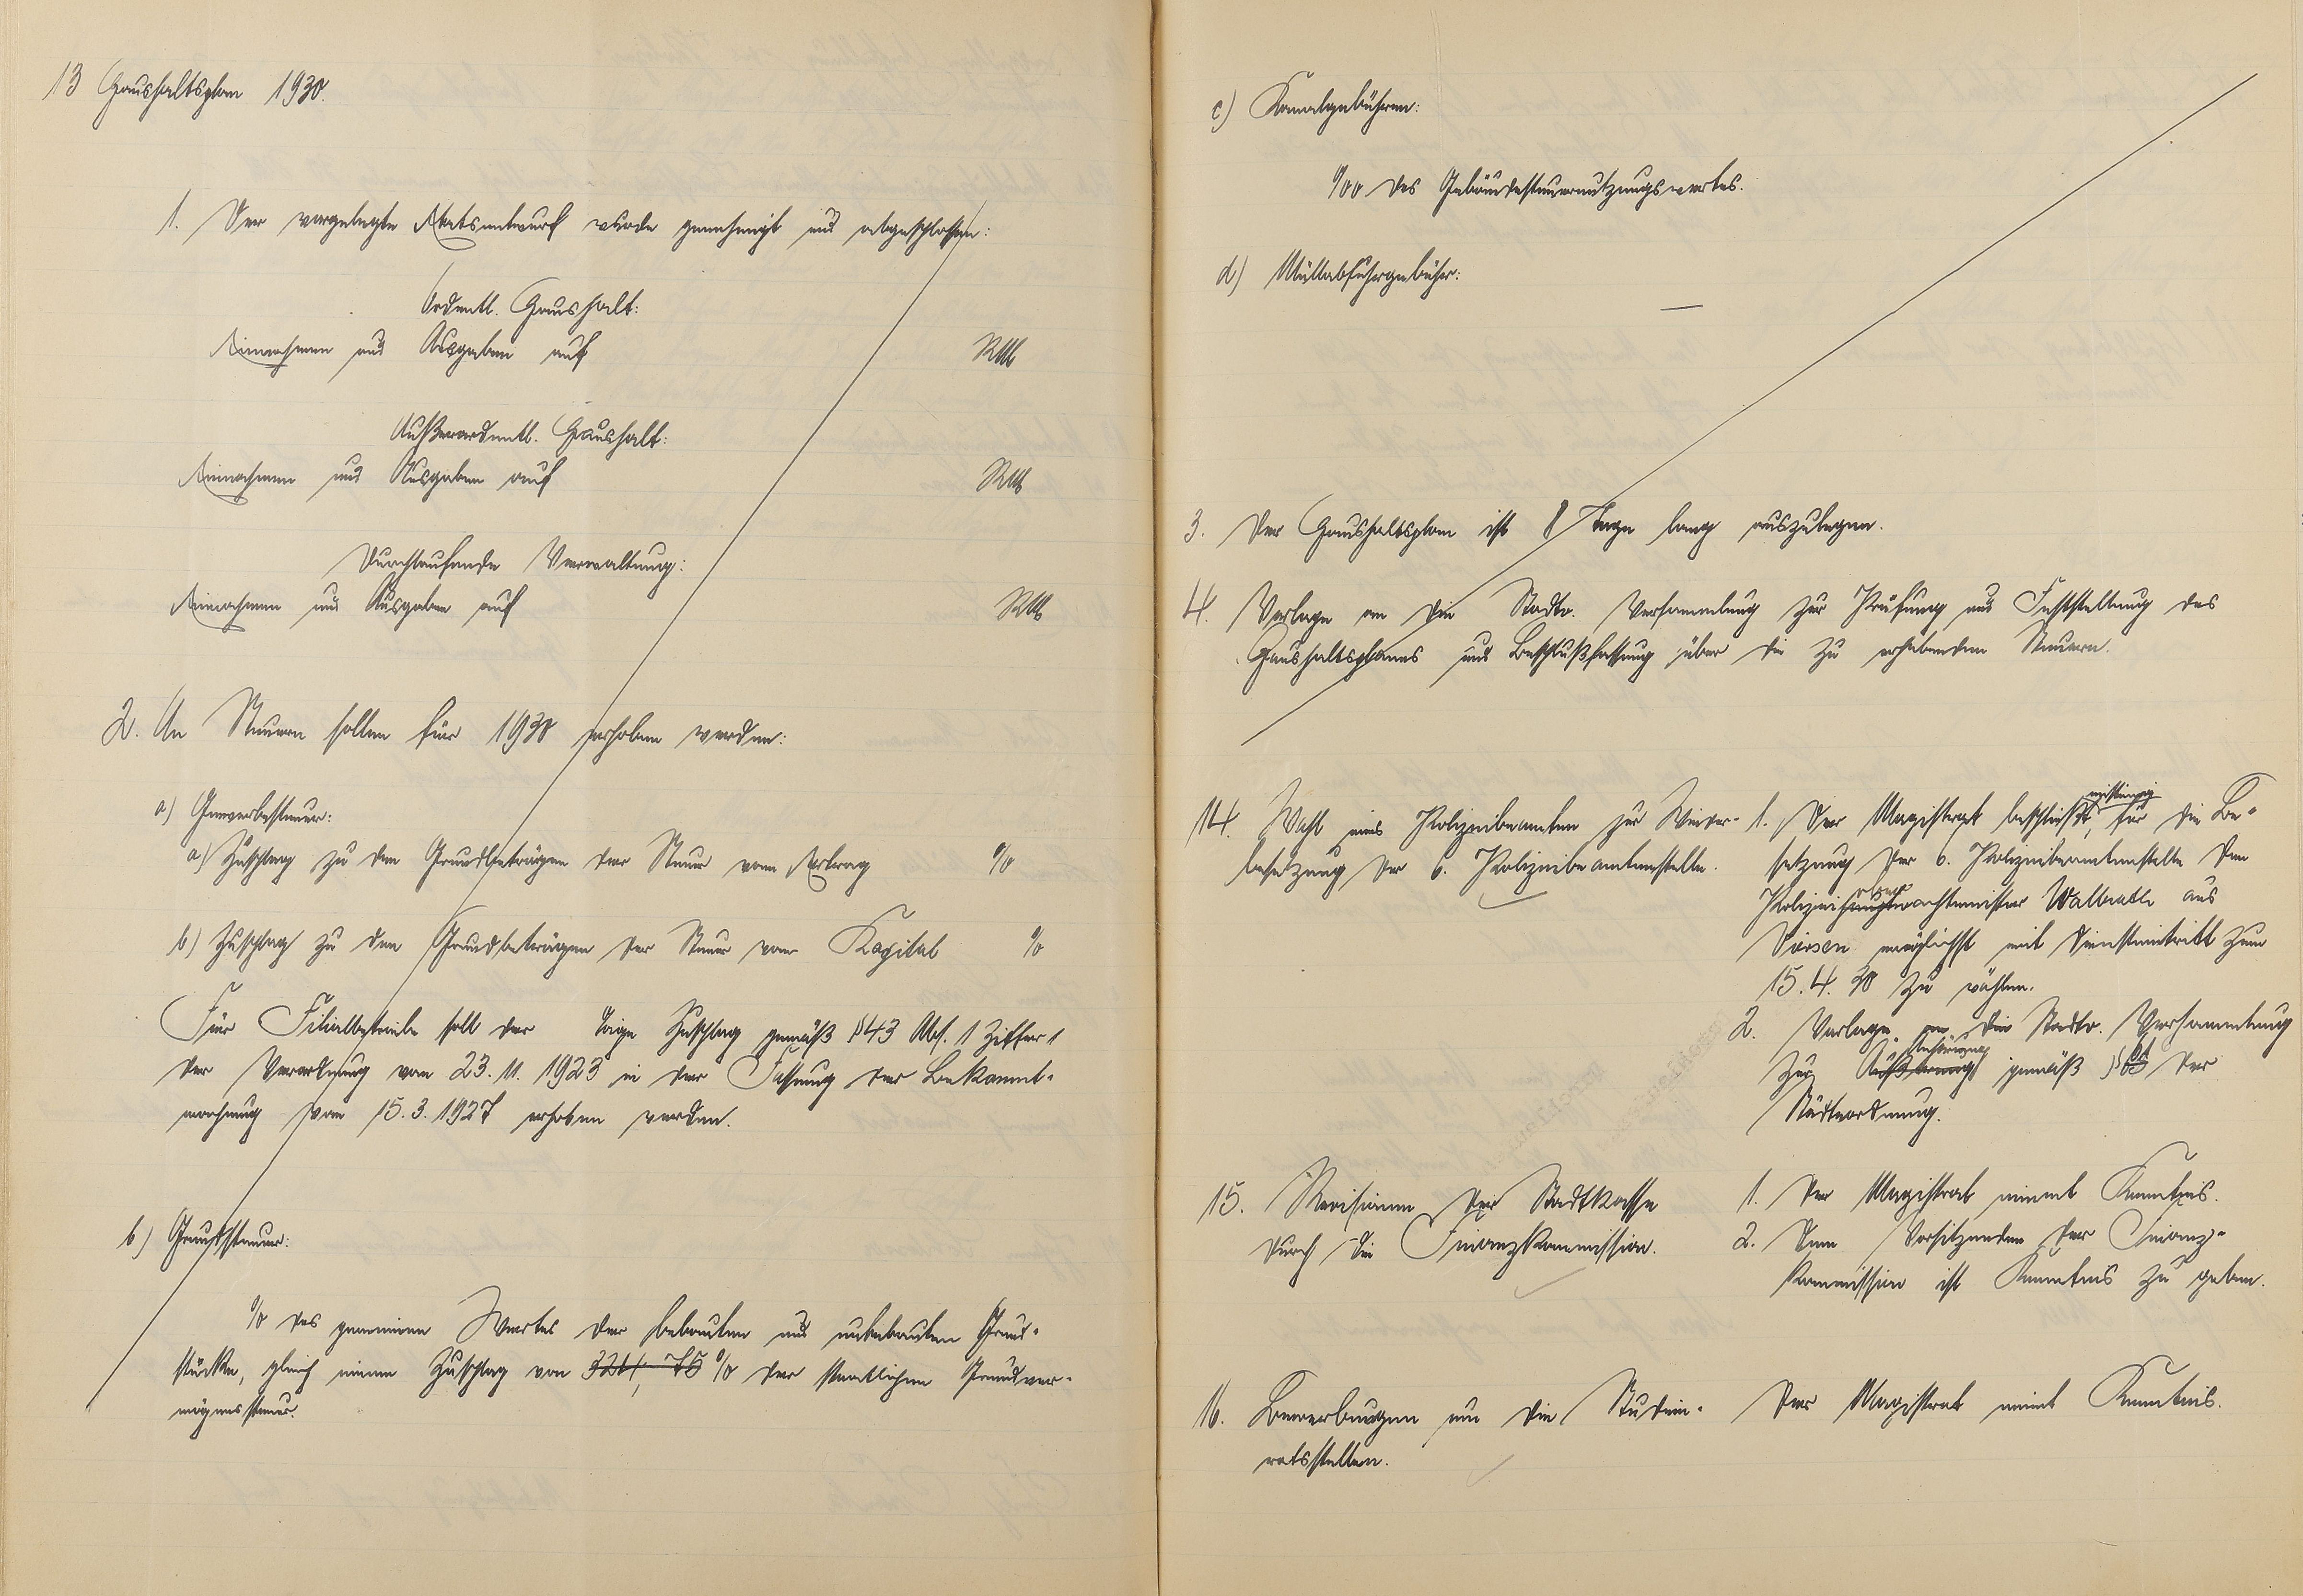 13 Haushaltsplan 1930.
1. Der vorgelegte Etatsentwurf wurde genehmigt und abgeschlossen:
Ordentl. Haushalt:
Einnahmen und Ausgaben auf RM
Außerordentl. Haushalt:
Einnahmen und Ausgaben auf RM
Durchlaufende Verwaltung:
Einnahmen und Ausgaben auf RM
2. An Steuern sollen für 1930 erhoben werden:
a) Gewerbesteuer:
a) Zuschlag zu den Grundbeträgen der Steuer vom Ertrag %
b) Zuschlag zu den Grundbeträgen der Steuer vom Kapital %
Für Filialbetriebe soll der tige Zuschlag gemäß § 43 Abs. 1 Ziffer 1
der Verordnung vom 23. 11. 1923 in der Fassung der Bekannt-
machung vom 15. 3. 1927 erhoben werden.
b) Grundsteuer:
% des gemeinen Wertes der bebauten und unbebauten Grund-
stücke, gleich einem Zuschlag von % der staatlichen Grundver-
mögenssteuer.
c) Kanalgebühren:
%00 des Gebäudesteuernutzungswertes.
d) Müllabfuhrgebühr:
—
3. Der Haushaltsplan ist 8 Tage lang auszulegen.
4. Vorlage an die Stadtv. Versammlung zur Prüfung und Feststellung des
Haushaltsplanes und Beschlußfassung über die zu erhebenden Steuern.
14. Wahl eines Polizeibeamten zur Wieder-
besetzung der 6. Polizeibeamtenstelle.
1. Der Magistrat beschließt einstimmig, für die Be-
setzung der 6. Polizeibeamtenstelle den
Polizeioberwachtmeister Walbrath aus
Viersen möglichst mit Diensteintritt zum
15. 4. 30 zu wählen.
2. Vorlage an die Stadtv. Versammlung
zur Anhörung gemäß § der
Städteordnung.
15. Revisionen der Stadtkasse
durch die Finanzkommission.
1. Der Magistrat nimmt Kenntnis.
2. Dem Vorsitzenden der Finanz-
kommission ist Kenntnis zu geben.
16. Bewerbungen um die Studien-
ratsstellen.
Der Magistrat nimmt Kenntnis.